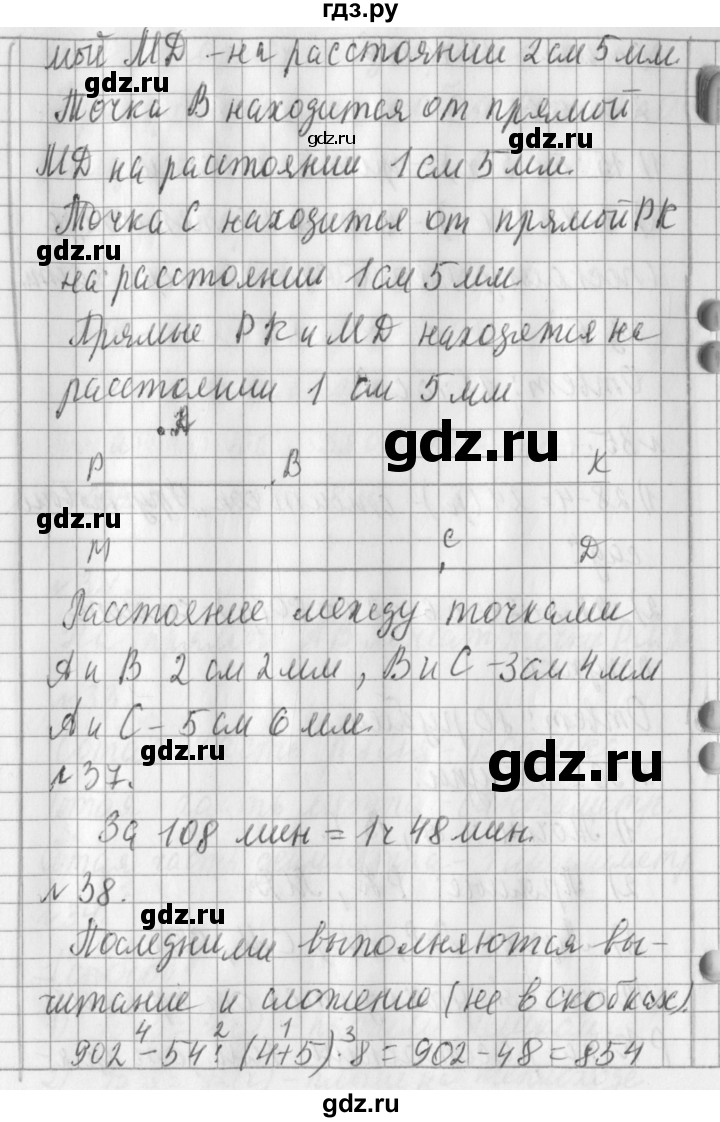 гдз.ру
мый МД - на расстоянии 2 см 5 мм.
Точка В находится от прямой
gdz.ru
gdz.ru
МД на расстоянии 1 см 5 мм.
Точка С находится от прямой РК
gdz.ru
на расстоянии 1 см 5 мм.
Прямые РК и МД находятся на
расстоянии 1 см 5 мм
.А
gdz.ru
Р .В К
gdz.ru
М С Д
Расстояние между точками
А и В 2 см 2 мм, В и С - 3 см 4 мм
А и С - 5 см 6 мм.
gdz.ru
gdz.ru
№ 37.
За 108 мин = 1 ч 48 мин.
№ 38.
gdz.ru
Последними выполняются вы-
читание и сложение (не в скобках).
4 2 1 3
902 - 54 : (4+5) · 8 = 902 - 48 = 854
gdz.ru